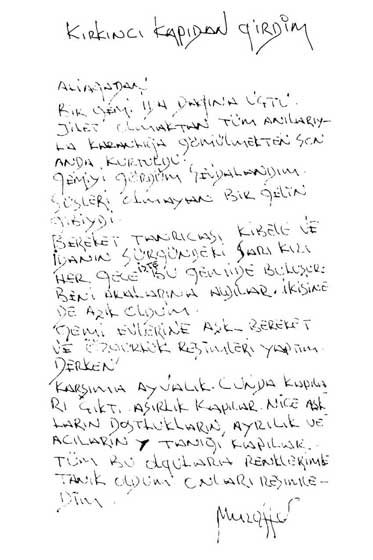 KIRKINCI KAPIDAN GİRDİM
ALİAĞADAN!
BİR GEMİ İDA DAĞINA UÇTU.
JİLET OLMAKTAN TÜM ANILARIY-
LA KARANLIĞA GÖMÜLMEKTEN SON
ANDA KURTULDU.
GEMİYİ GÖRDÜM SEVDALANDIM.
SÜSLERİ OLMAYAN BİR GELİN
GİBİYDİ.
BEREKET TANRIÇASI KİBELE VE
İDANIN SÜRGÜNDEKİ SARI KIZI
HER GECE İŞTE BU GEMİDE BULUŞUR.
BENİ ARALARINA ALDILAR. İKİSİNE
DE AŞIK OLDUM.
GEMİ EVLERİNE AŞK BEREKET
VE ÖZGÜRLÜK RESİMLERİ YAPTIM.
DERKEN!
KARŞIMA AYVALIK CUNDA KAPILA
RI ÇIKTI. ASIRLIK KAPILAR. NİCE AŞK
LARIN DOSTLUKLARIN, AYRILIK VE
ACILARIN TANIĞI KAPILAR.
TÜM BU OLGULARA RENKLERİMLE
TANIK OLDUM ONLARI RESİMLE-
DİM.
Muzaffer